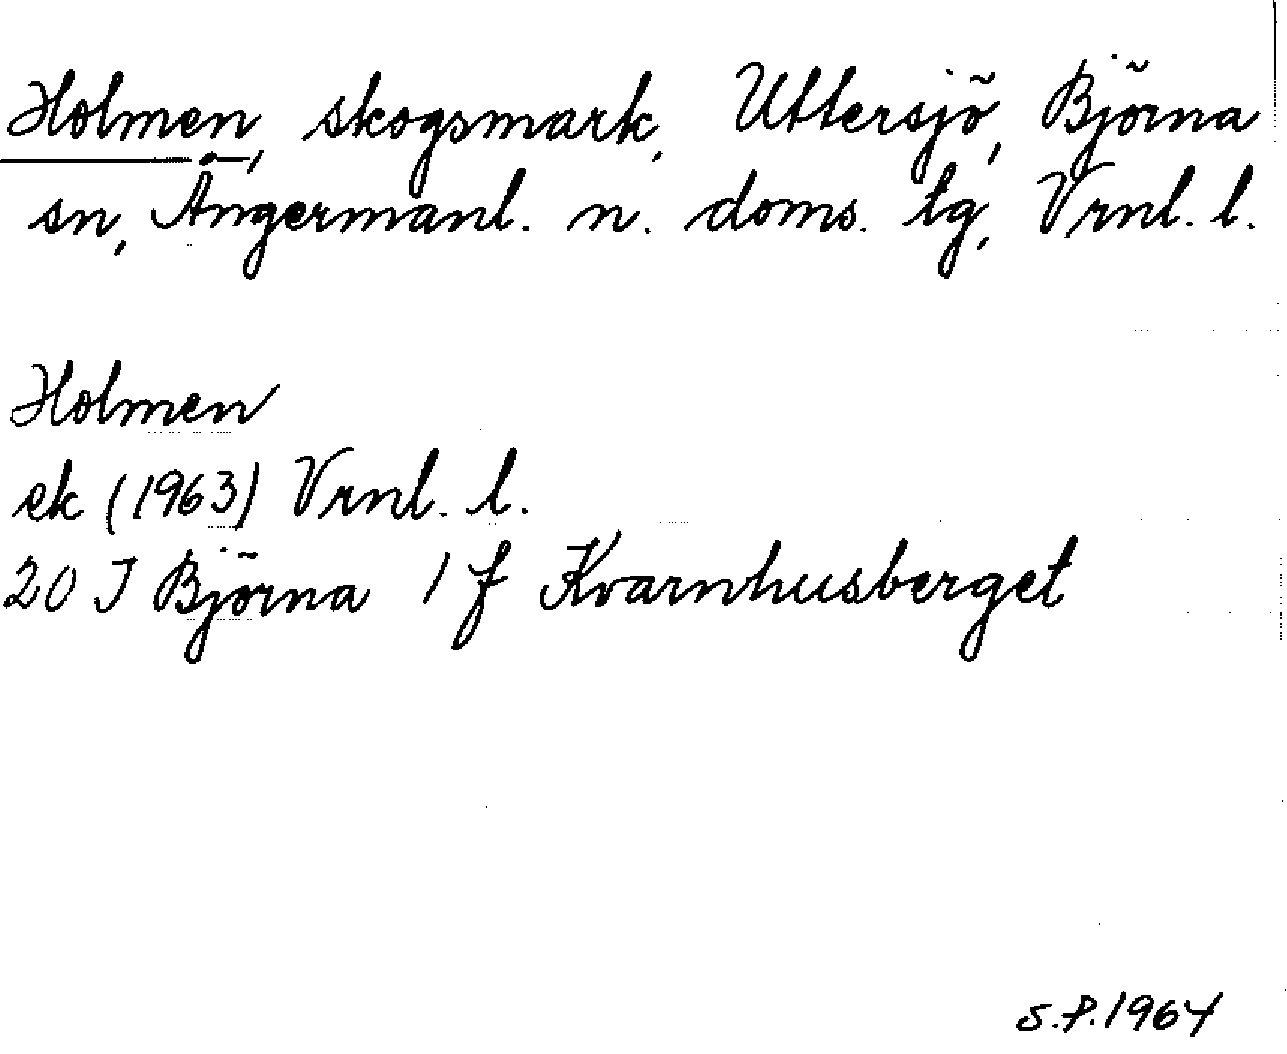 Holmen, skogsmark, Uttersjö, Björna
sn, Ångermanl. n. doms. tg, Vrnl. l.
Holmen
ek (1963) Vrnl. l.
20 J Björna 1 f Kvarnhusberget
S.P. 1964